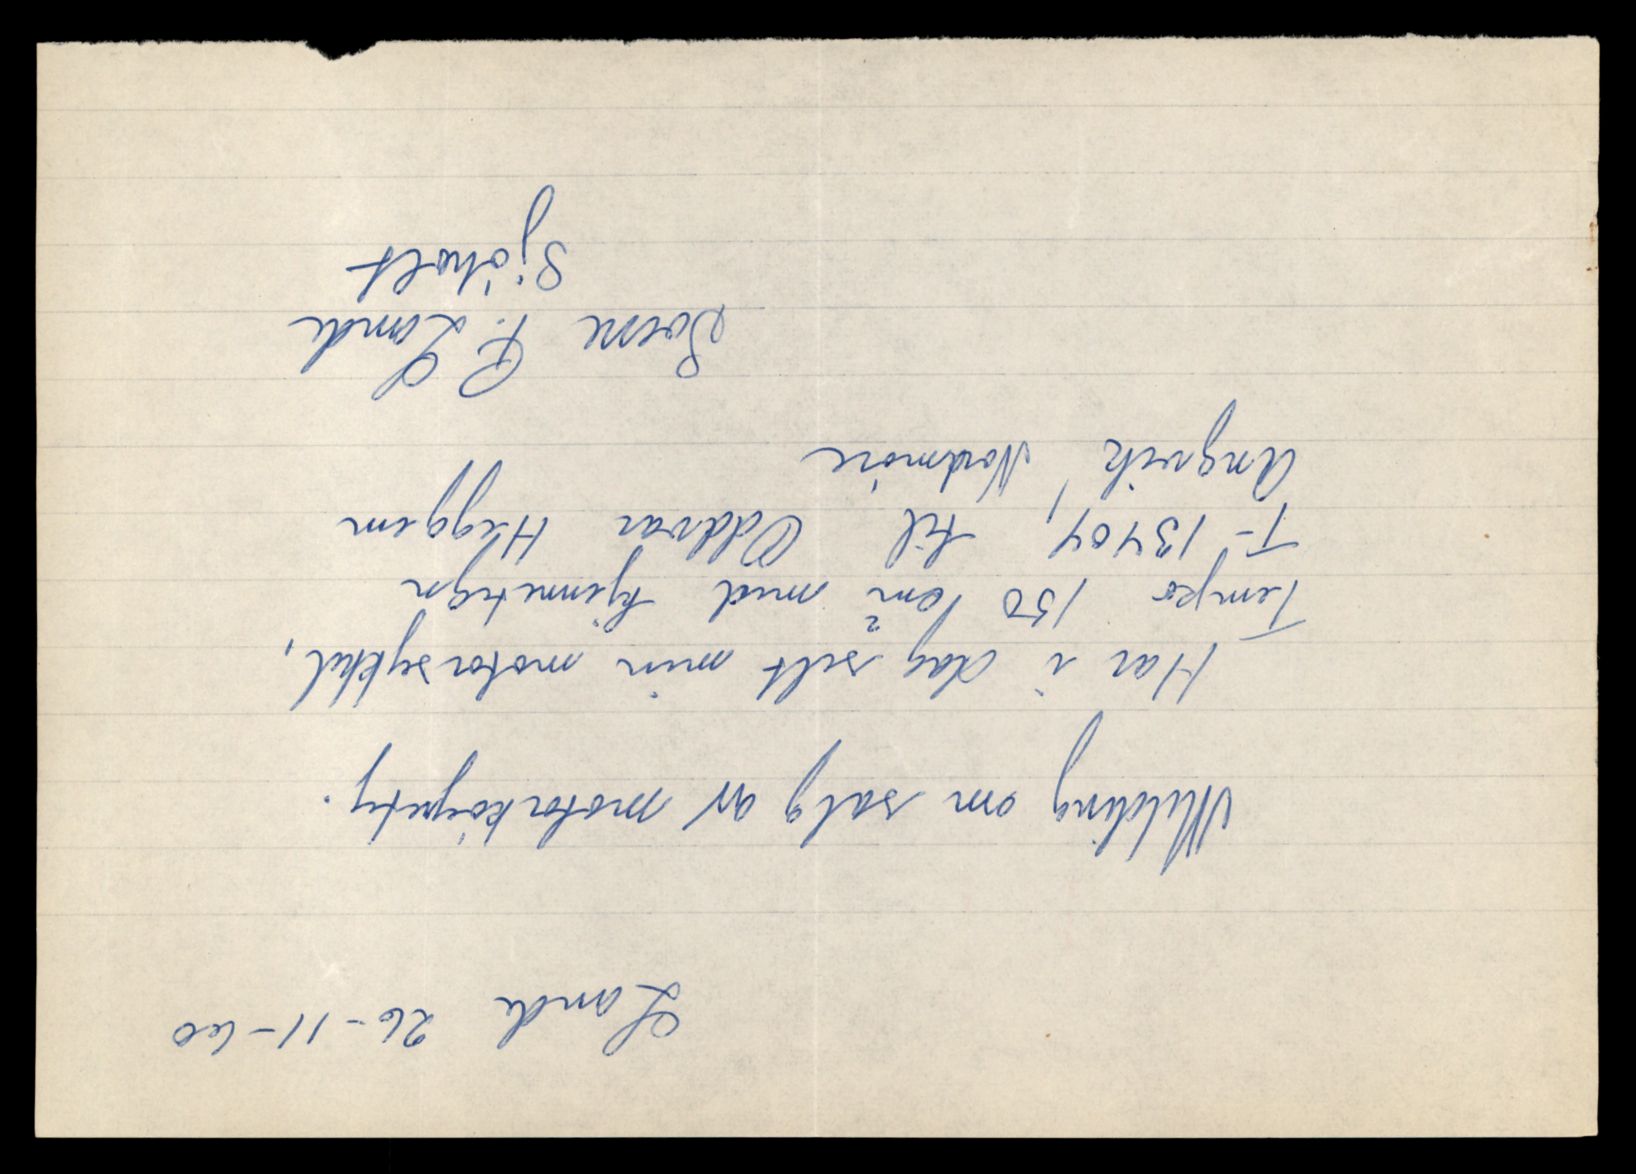 Lande 26-11-60
Melding om salg av motorkøyrety.
Har i dag selt min motorsykkel,
Tempo 150 cm² med kjennetegn
T-13404 til Oddvar Heggem
Angvik, Nordmøre
P. Lande
Sjøholt